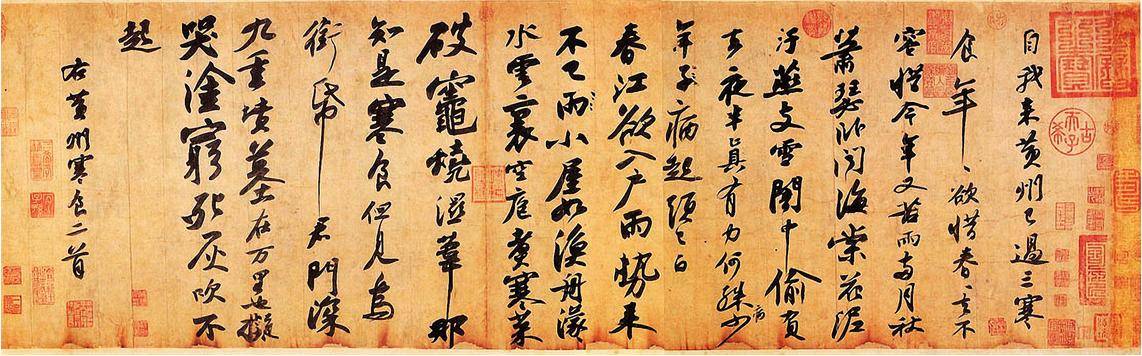 自我来黄州已過三寒
食年〻欲惜春〻去不
容惜今年又苦雨兩月秋
蕭瑟卧聞海棠花泥
汙燕支雪闇中偷負
去夜半真有力何殊少病
年子病起頭已白
春江欲入戶雨勢来
不已雨小屋如漁舟濛〻
水雲裏空庖煮寒菜
破竈燒濕葦那
知是寒食但見烏
銜帋君門深
九重墳墓在万里也擬
哭塗窮死灰吹不
起
右黄州寒食二首
古希天子